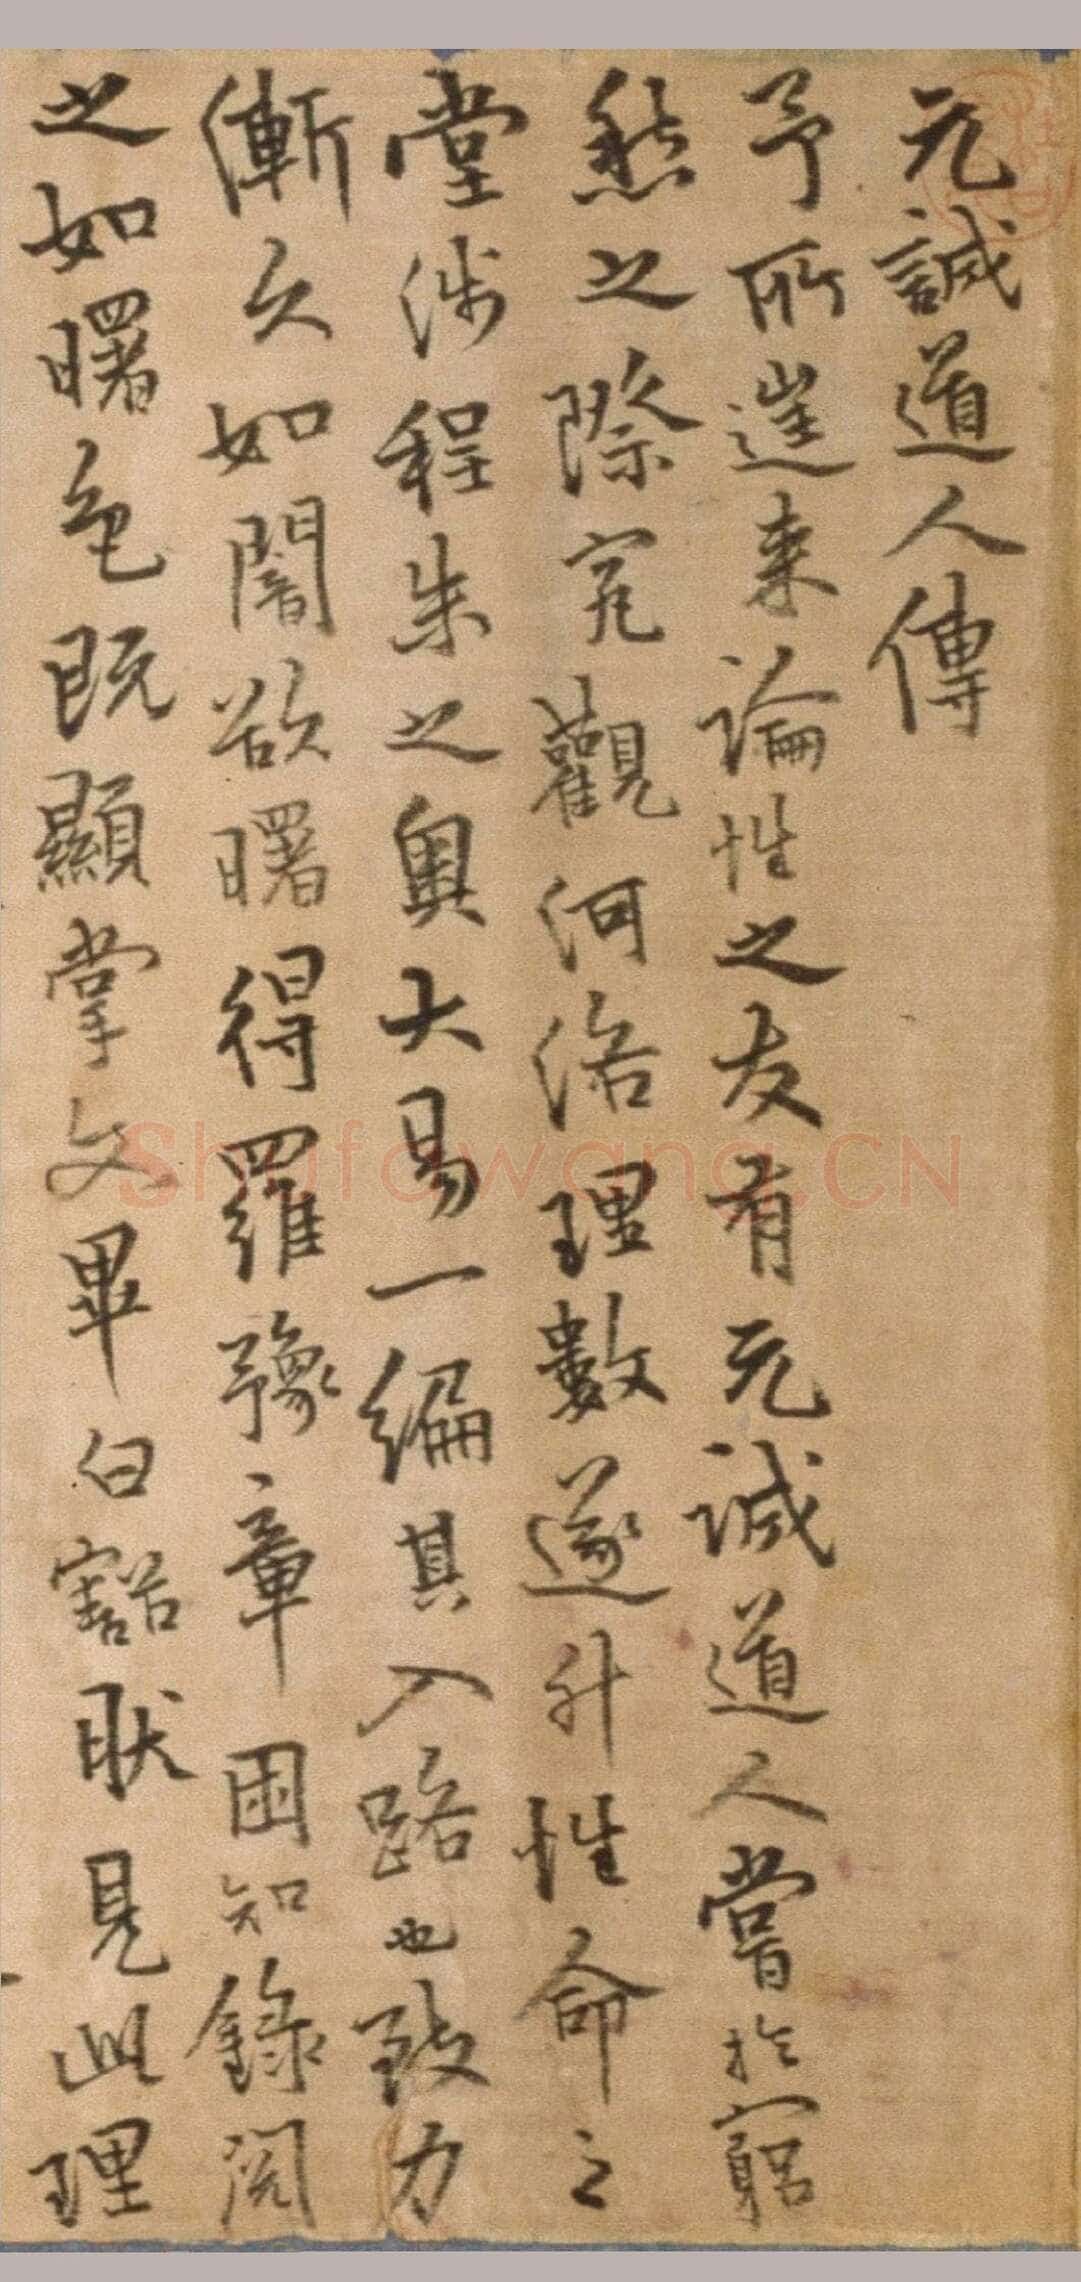 元誠道人傳
予所逢來論性之友有元誠道人嘗於窮
愁之際究觀河洛理數遂升性命之
堂涉程朱之奧大易一編其入路也致力
漸久如闇欲曙得羅豫章困知錄閱
之如曙色既顯掌文畢白豁狀見此理
Shufawang.CN